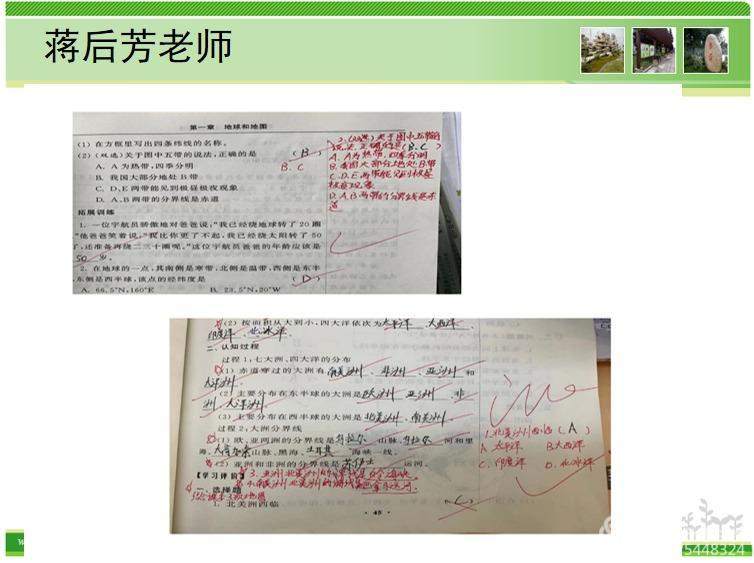 蒋后芳老师
第一章 地球和地图
(1) 在方框里写出四条纬线的名称。
(2) (双选) 关于图中五带的说法,正确的是 ( B )
B. C
A. A 为热带,四季分明
B. 我国大部分地处 B 带
C. C、D、E 两带能见到极昼极夜现象
D. A、B 两带的分界线是赤道
拓展训练
1. 一位宇航员骄傲地对爸爸说:“我已经绕地球转了 20 圈
”他爸爸笑着说:“我比你更了不起,我已经绕太阳转了 50
了,还准备再绕二三十圈呢。”这位宇航员爸爸的年龄应该是
50 岁。
2. 在地球的一点,其南侧是寒带,北侧是温带,西侧是东半
,东侧是西半球,该点的经纬度是 ( D )
A. 66.5°N,160°E B. 23.5°N,20°W
2、(双选) 关于图中五带的
说法,正确的是 (B、C)
A、A为热带,四季分明
B、我国大部分地处B带
C、C、D、E两带能见到极昼
极夜现象
D、A、B两带的分界线是赤
道
(2) 按面积从大到小,四大洋依次为 太平洋、大西洋、
印度洋、北冰洋。
二、认知过程
过程1:七大洲、四大洋的分布
(1) 赤道穿过的大洲有 南美洲、非洲、亚洲 和
大洋洲。
(2) 主要分布在东半球的大洲是 欧洲、亚洲、非
洲、大洋洲。
(3) 主要分布在西半球的大洲是 北美洲、南美洲。
过程2:大洲分界线
(1) 欧、亚两洲的分界线是 乌拉尔 山脉、乌拉尔 河和里
海、大高加索 山脉、黑海、土耳其 海峡一线。
(2) 亚洲和非洲的分界线是 苏伊士 运河。
【学习评价】
一、选择题
1. 北美洲西临 ( C )
· 45 ·
1. 北美洲西临 ( A )
A. 太平洋 B. 大西洋
C. 印度洋 D. 北冰洋
5448324